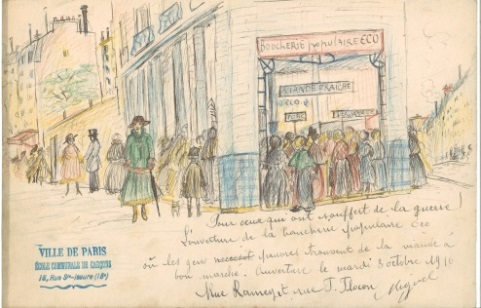 BOUCHERIE populaire ECO
VIANDE FRAICHE
Pour ceux qui ont souffert de la guerre !
L'ouverture de la boucherie populaire Eco
où les gens pauvres trouvent de la viande à
bon marché. Ouverture le mardi 3 octobre 1916
Rue Ramey et rue F. Flocon
VILLE DE PARIS
ÉCOLE COMMUNALE DE GARÇONS
18, Rue Ste-Isaure (18e)